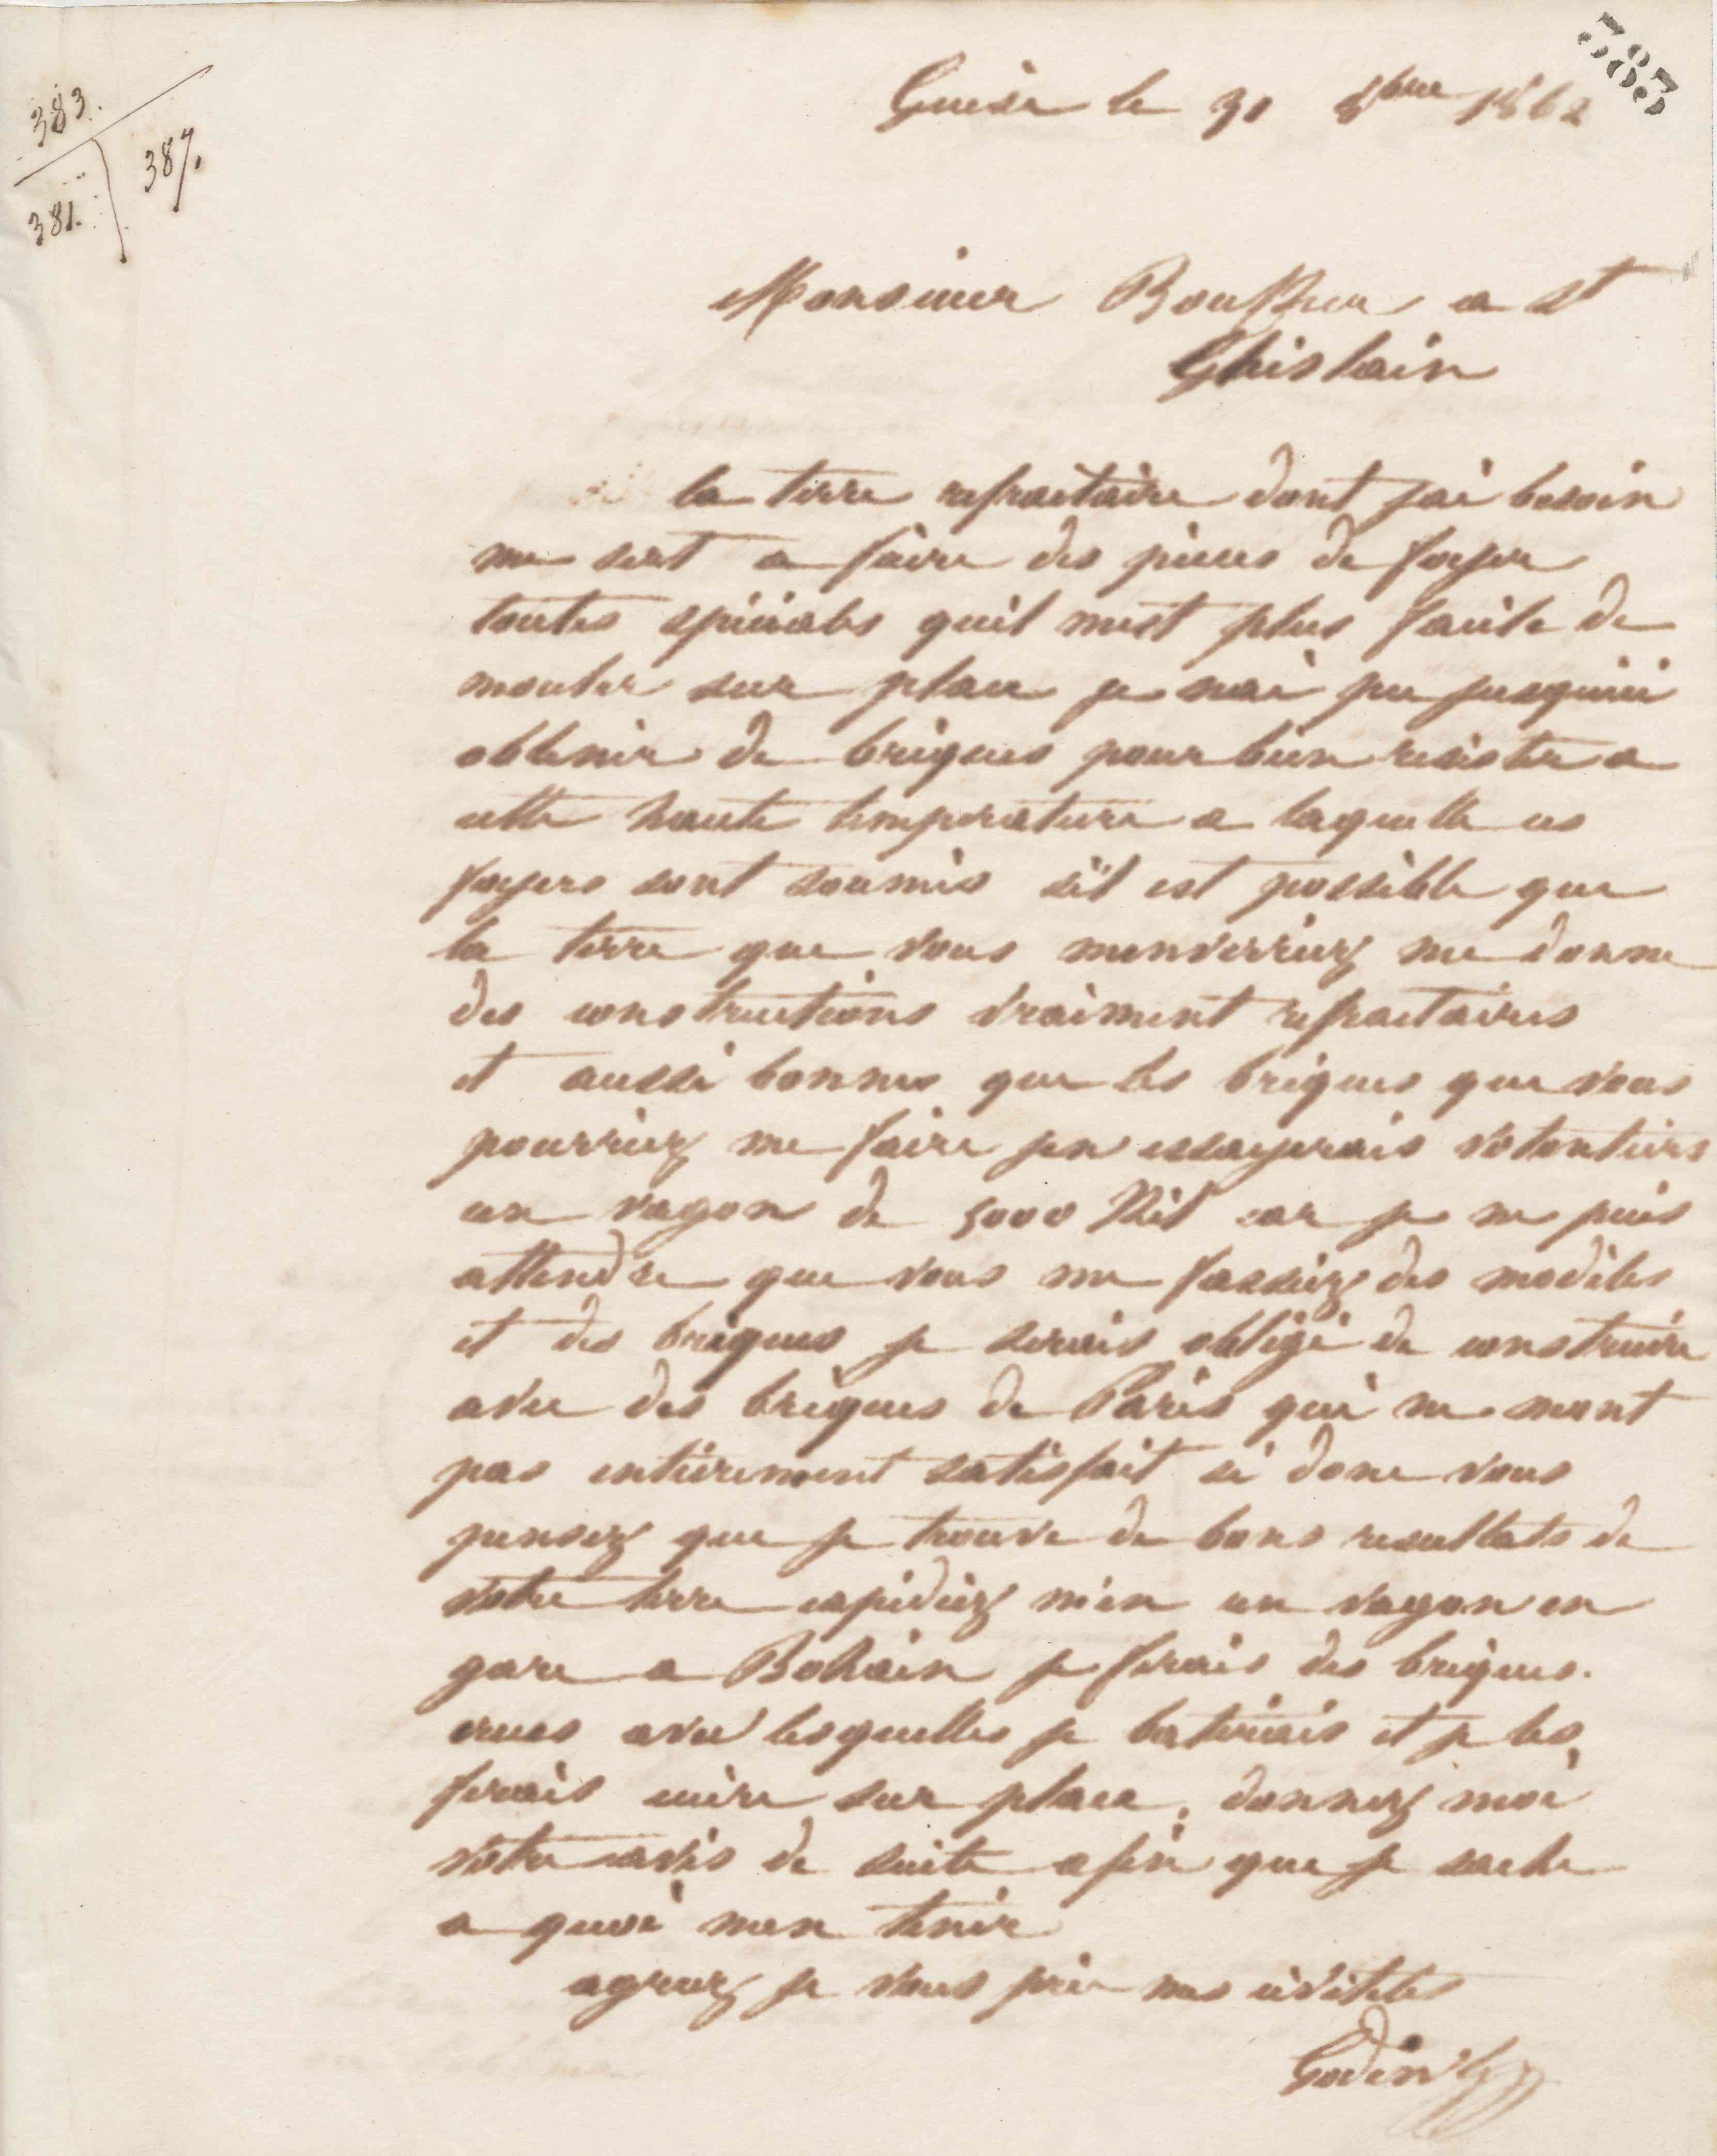 383
383.
381.
387.
Guise le 31 8bre 1862
Monsieur a St
Ghislain
la terre refractaire dont jai besoin
me sert a faire des pieces de foyer
toutes spéciales quil mest plus facile de
mouler sur place je nai pu jusquici
obtenir de briques pour bien resister a
cette haute temperature a laquelle ces
foyers sont soumis sil est possible que
la terre que vous menverriez me donne
des constructions vraiment refractaires
et aussi bonnes que les briques que vous
pourriez me faire jen essayerais volontiers
un vagon de 5000 Kil car je ne puis
attendre que vous me fassiez des modèles
et des briques je serais obligé de construire
avec des briques de Paris qui ne mont
pas entierement satisfait si donc vous
pensez que je trouve de bons resultats de
votre terre expediez m'en un vagon en
gare a Bohain je ferais des briques.
crues avec lesquelles je batirais et je les
ferais cuire sur place, donnez moi
votre avis de suite afin que je sache
a quoi men tenir
agreez je vous prie mes civilités
Godin